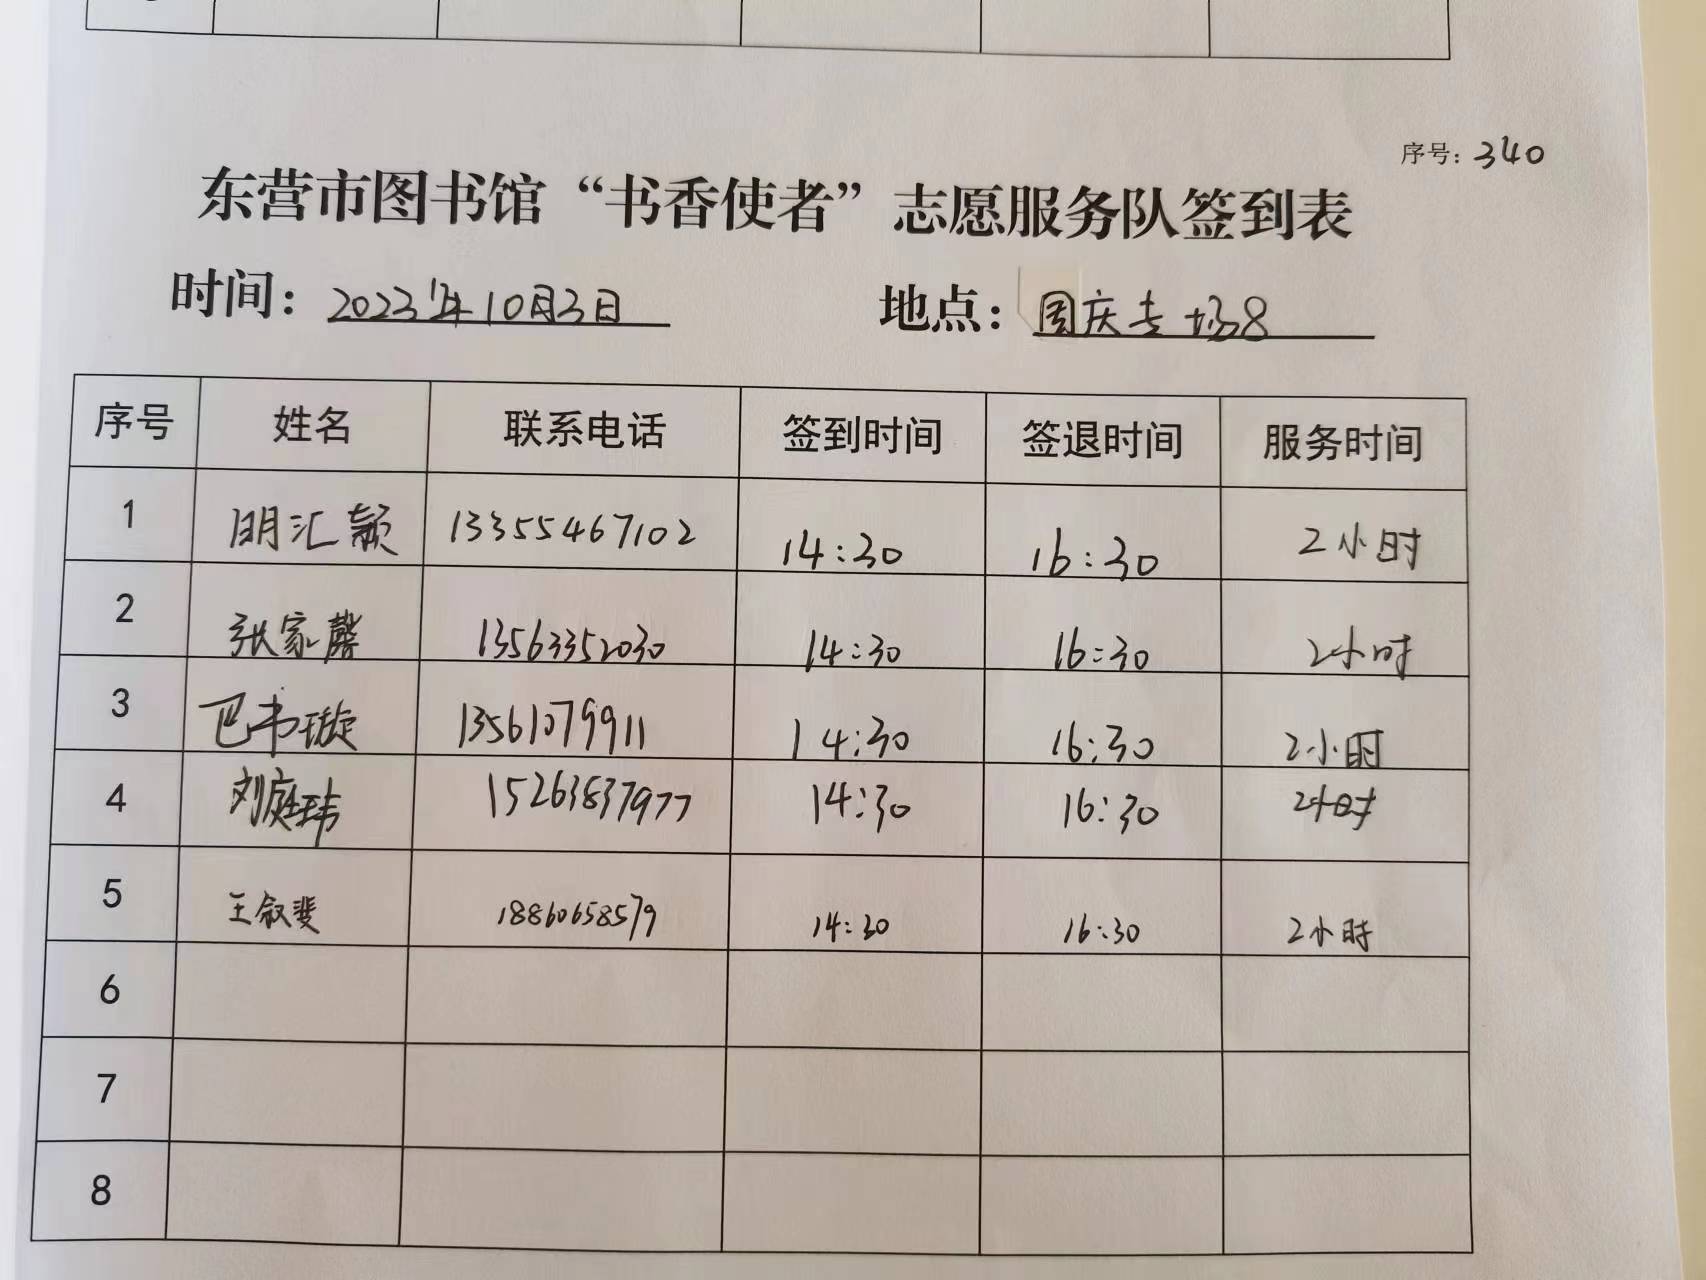 序号：340
东营市图书馆“书香使者”志愿服务队签到表
时间：2023年10月3日 地点：国庆专场8
序号 姓名 联系电话 签到时间 签退时间 服务时间
1 明汇颖 13355467102 14:30 16:30 2小时
2 张家馨 13563352030 14:30 16:30 2小时
3 巴书璇 13561079911 14:30 16:30 2小时
4 刘庭玮 15263837977 14:30 16:30 2小时
5 王叙斐 18860658579 14:30 16:30 2小时
6
7
8